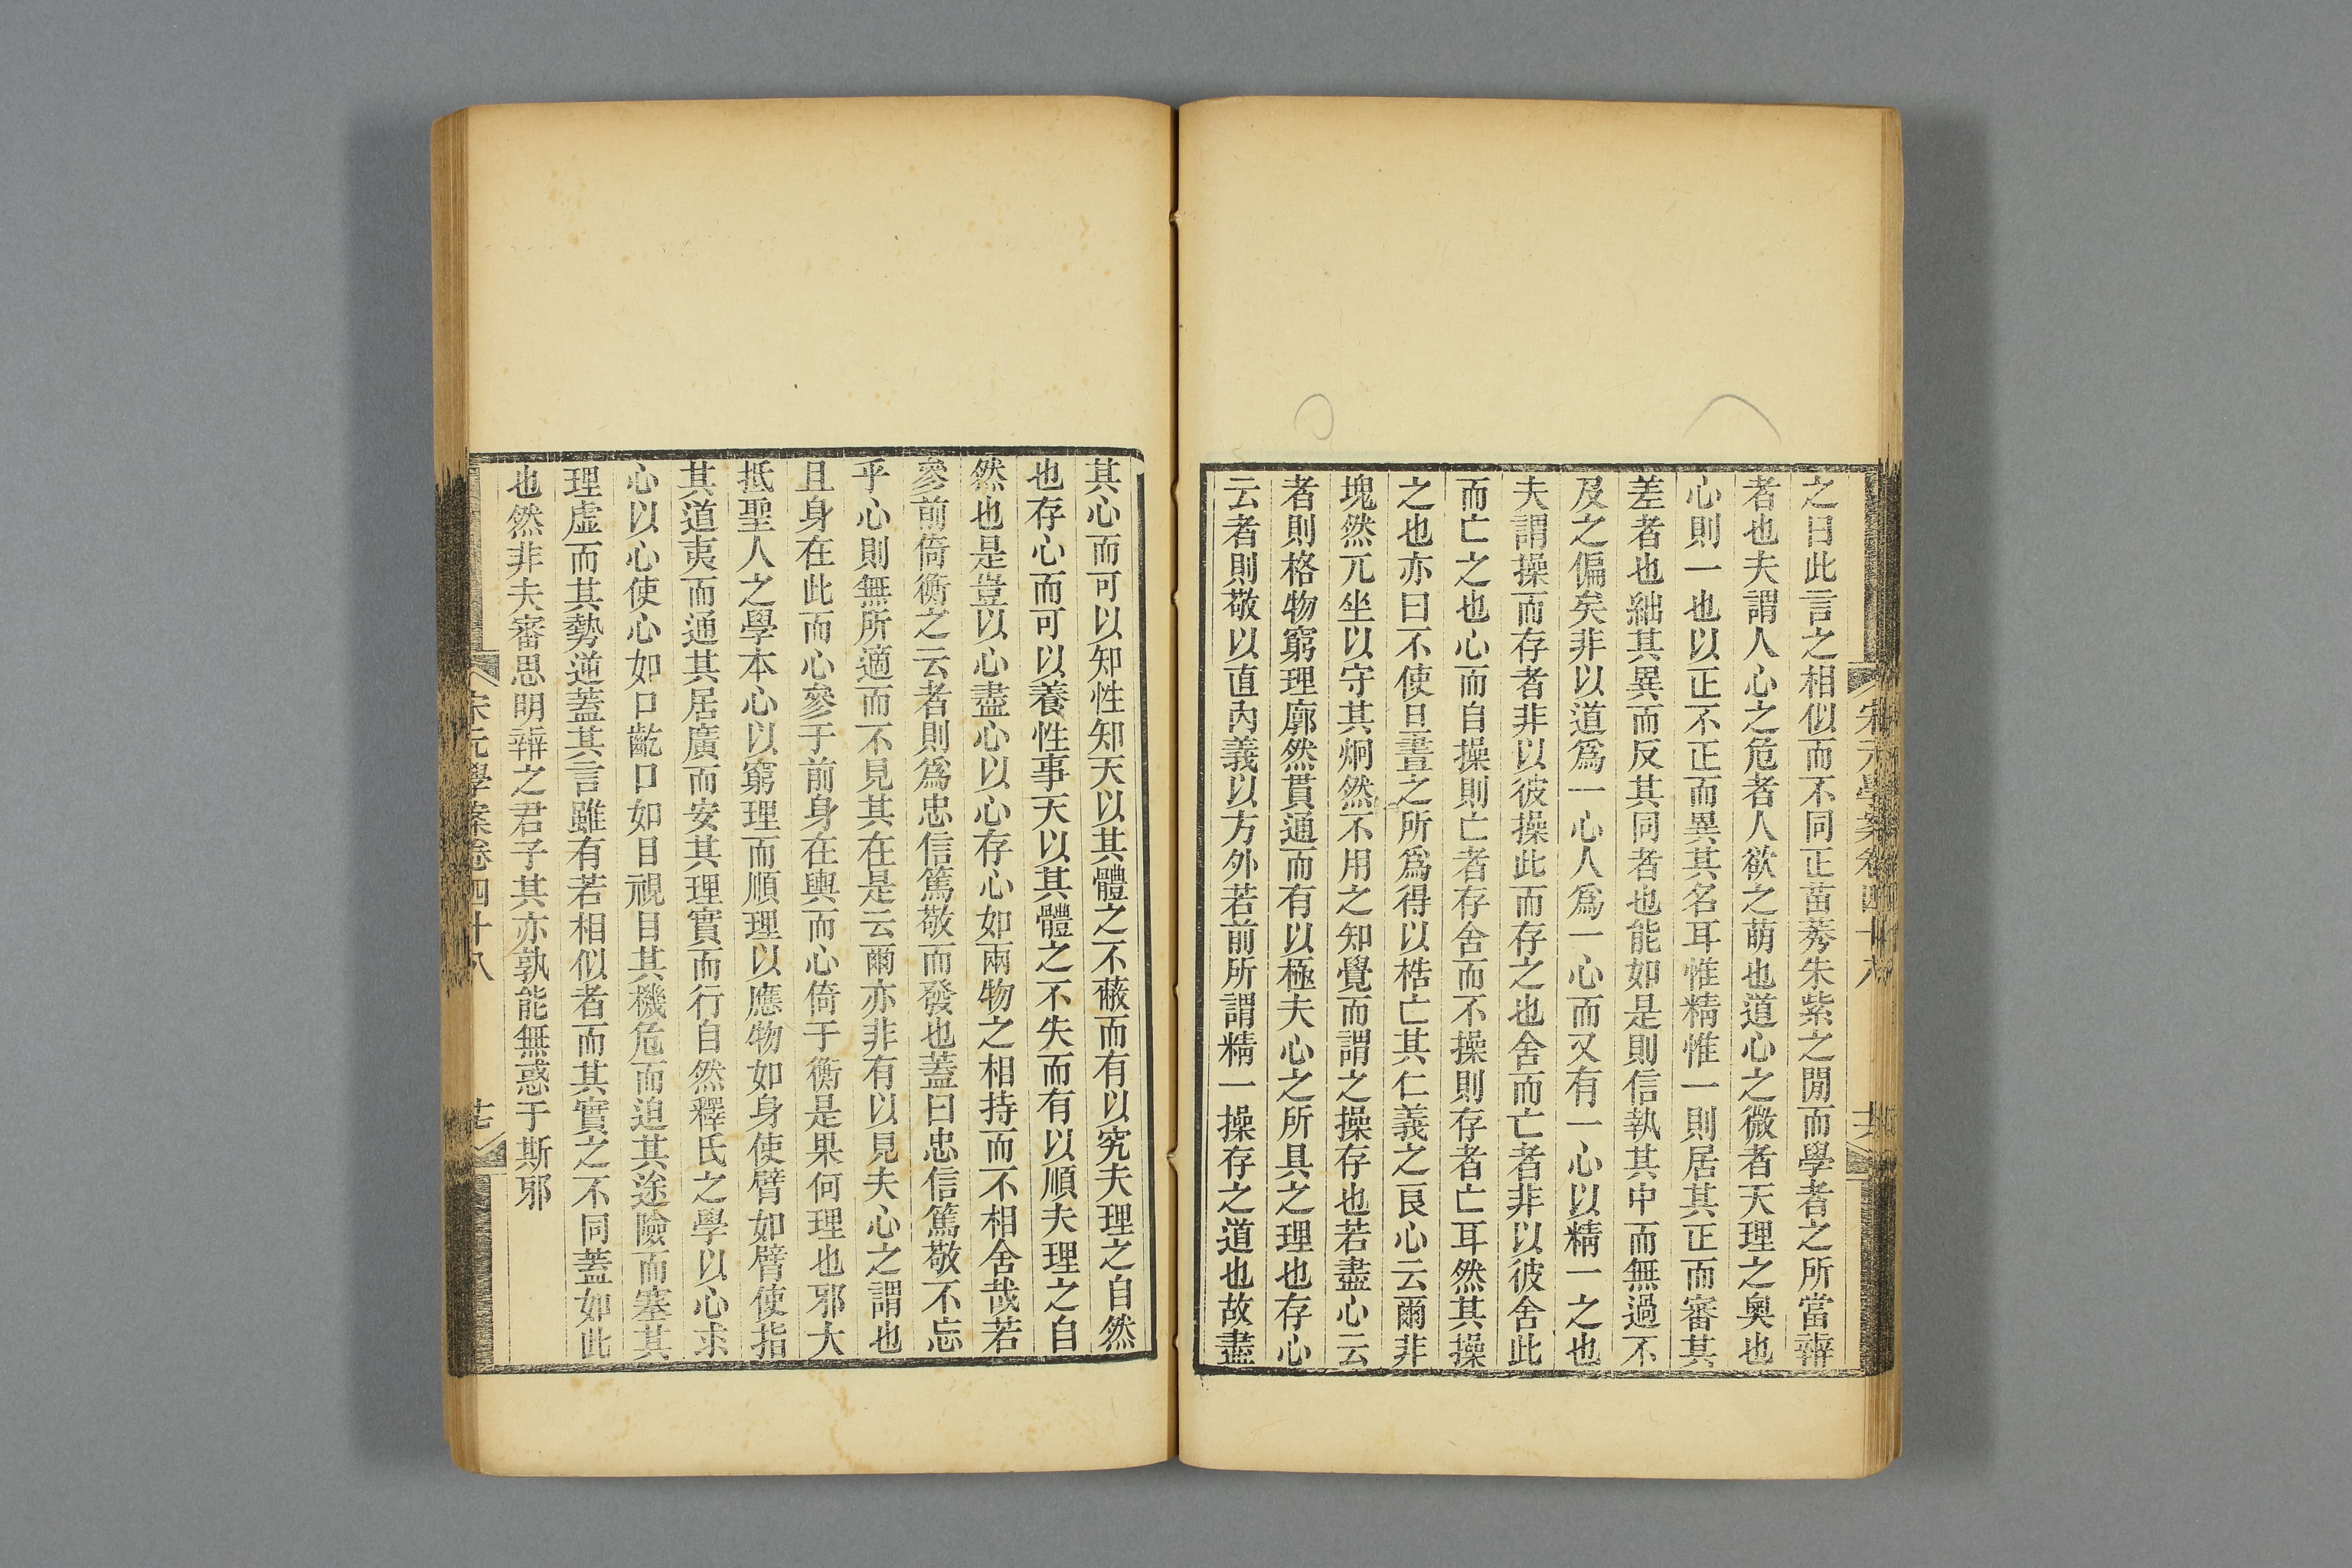 之曰此言之相似而不同正苗莠朱紫之閒而學者之所當辨
者也夫謂人心之危者人欲之萌也道心之微者天理之奧也
心則一也以正不正而異其名耳惟精惟一則居其正而審其
差者也絀其異而反其同者也能如是則信執其中而無過不
及之偏矣非以道爲一心人爲一心而又有一心以精一之也
夫謂操而存者非以彼操此而存之也舍而亡者非以彼舍此
而亡之也心而自操則亡者存舍而不操則存者亡耳然其操
之也亦曰不使旦晝之所爲得以梏亡其仁義之良心云爾非
塊然兀坐以守其炯然不用之知覺而謂之操存也若盡心云
者則格物窮理廓然貫通而有以極夫心之所具之理也存心
云者則敬以直內義以方外若前所謂精一操存之道也故盡
其心而可以知性知天以其體之不蔽而有以究夫理之自然
也存心而可以養性事天以其體之不失而有以順夫理之自
然也是豈以心盡心以心存心如兩物之相持而不相舍哉若
參前倚衡之云者則爲忠信篤敬而發也蓋曰忠信篤敬不忘
乎心則無所適而不見其在是云爾亦非有以見夫心之謂也
且身在此而心參于前身在輿而心倚于衡是果何理也邪大
抵聖人之學本心以窮理而順理以應物如身使臂如臂使指
其道夷而通其居廣而安其理實而行自然釋氏之學以心求
心以心使心如口齕口如目視目其機危而迫其途險而塞其
理虛而其勢逆蓋其言雖有若相似者而其實之不同蓋如此
也然非夫審思明辨之君子其亦孰能無惑于斯邪
宋元學案卷四十八